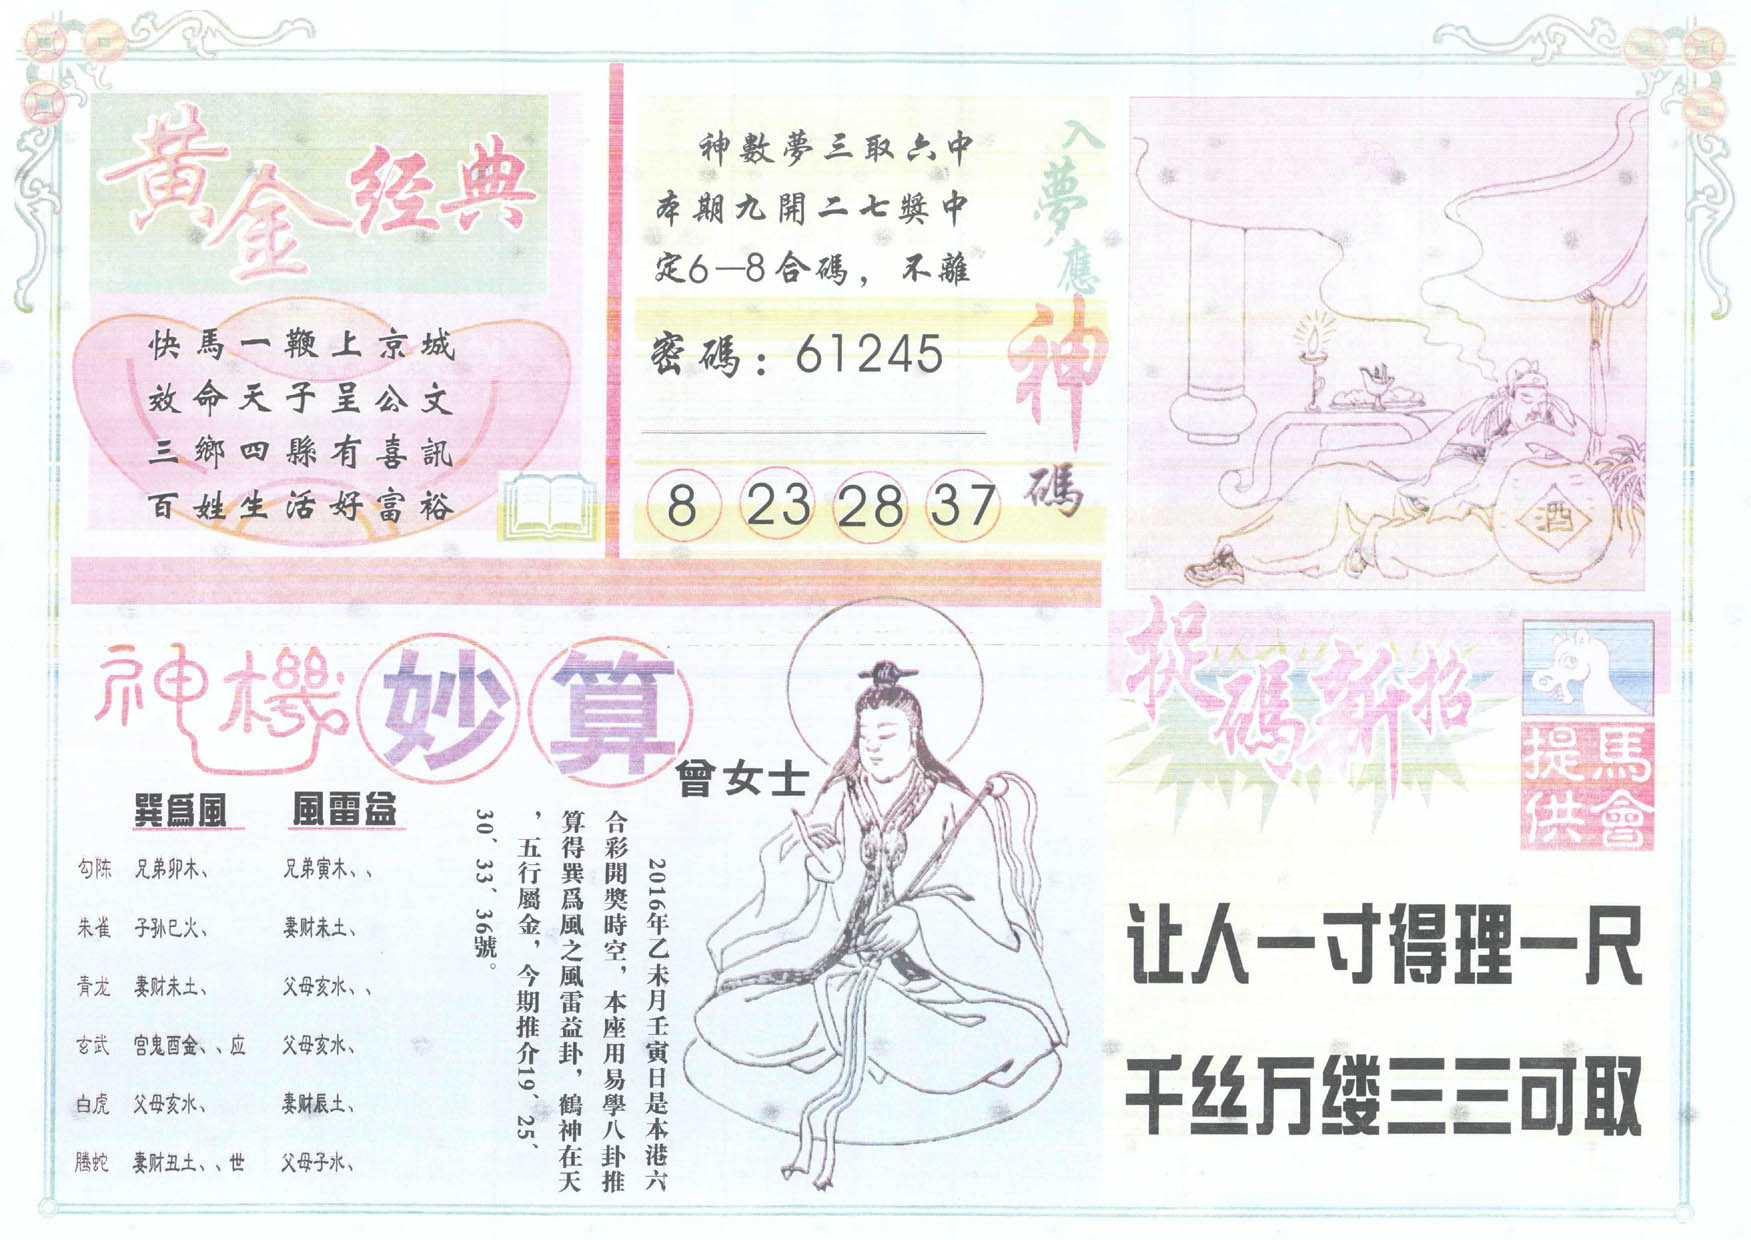 黃金经典
快馬一鞭上京城
效命天子呈公文
三鄉四縣有喜訊
百姓生活好富裕
神數夢三取六中
本期九開二七獎中
定6—8合碼，不離
密碼：61245
8 23 28 37
入夢應神碼
酒
神機妙算
曾女士
巽爲風 風雷益
勾陈 兄弟卯木、 兄弟寅木、、
朱雀 子孙巳火、 妻财未土、
青龙 妻财未土、 父母亥水、、
玄武 宫鬼酉金、、应 父母亥水、
白虎 父母亥水、 妻财辰土、
腾蛇 妻财丑土、、世 父母子水、
2016年乙未月壬寅日是本港六
合彩開獎時空，本座用易學八卦推
算得巽爲風之風雷益卦，鶴神在天
，五行屬金，今期推介19、25、
30、33、36號。
捉碼新招
馬會
提供
让人一寸得理一尺
千丝万缕三三可取